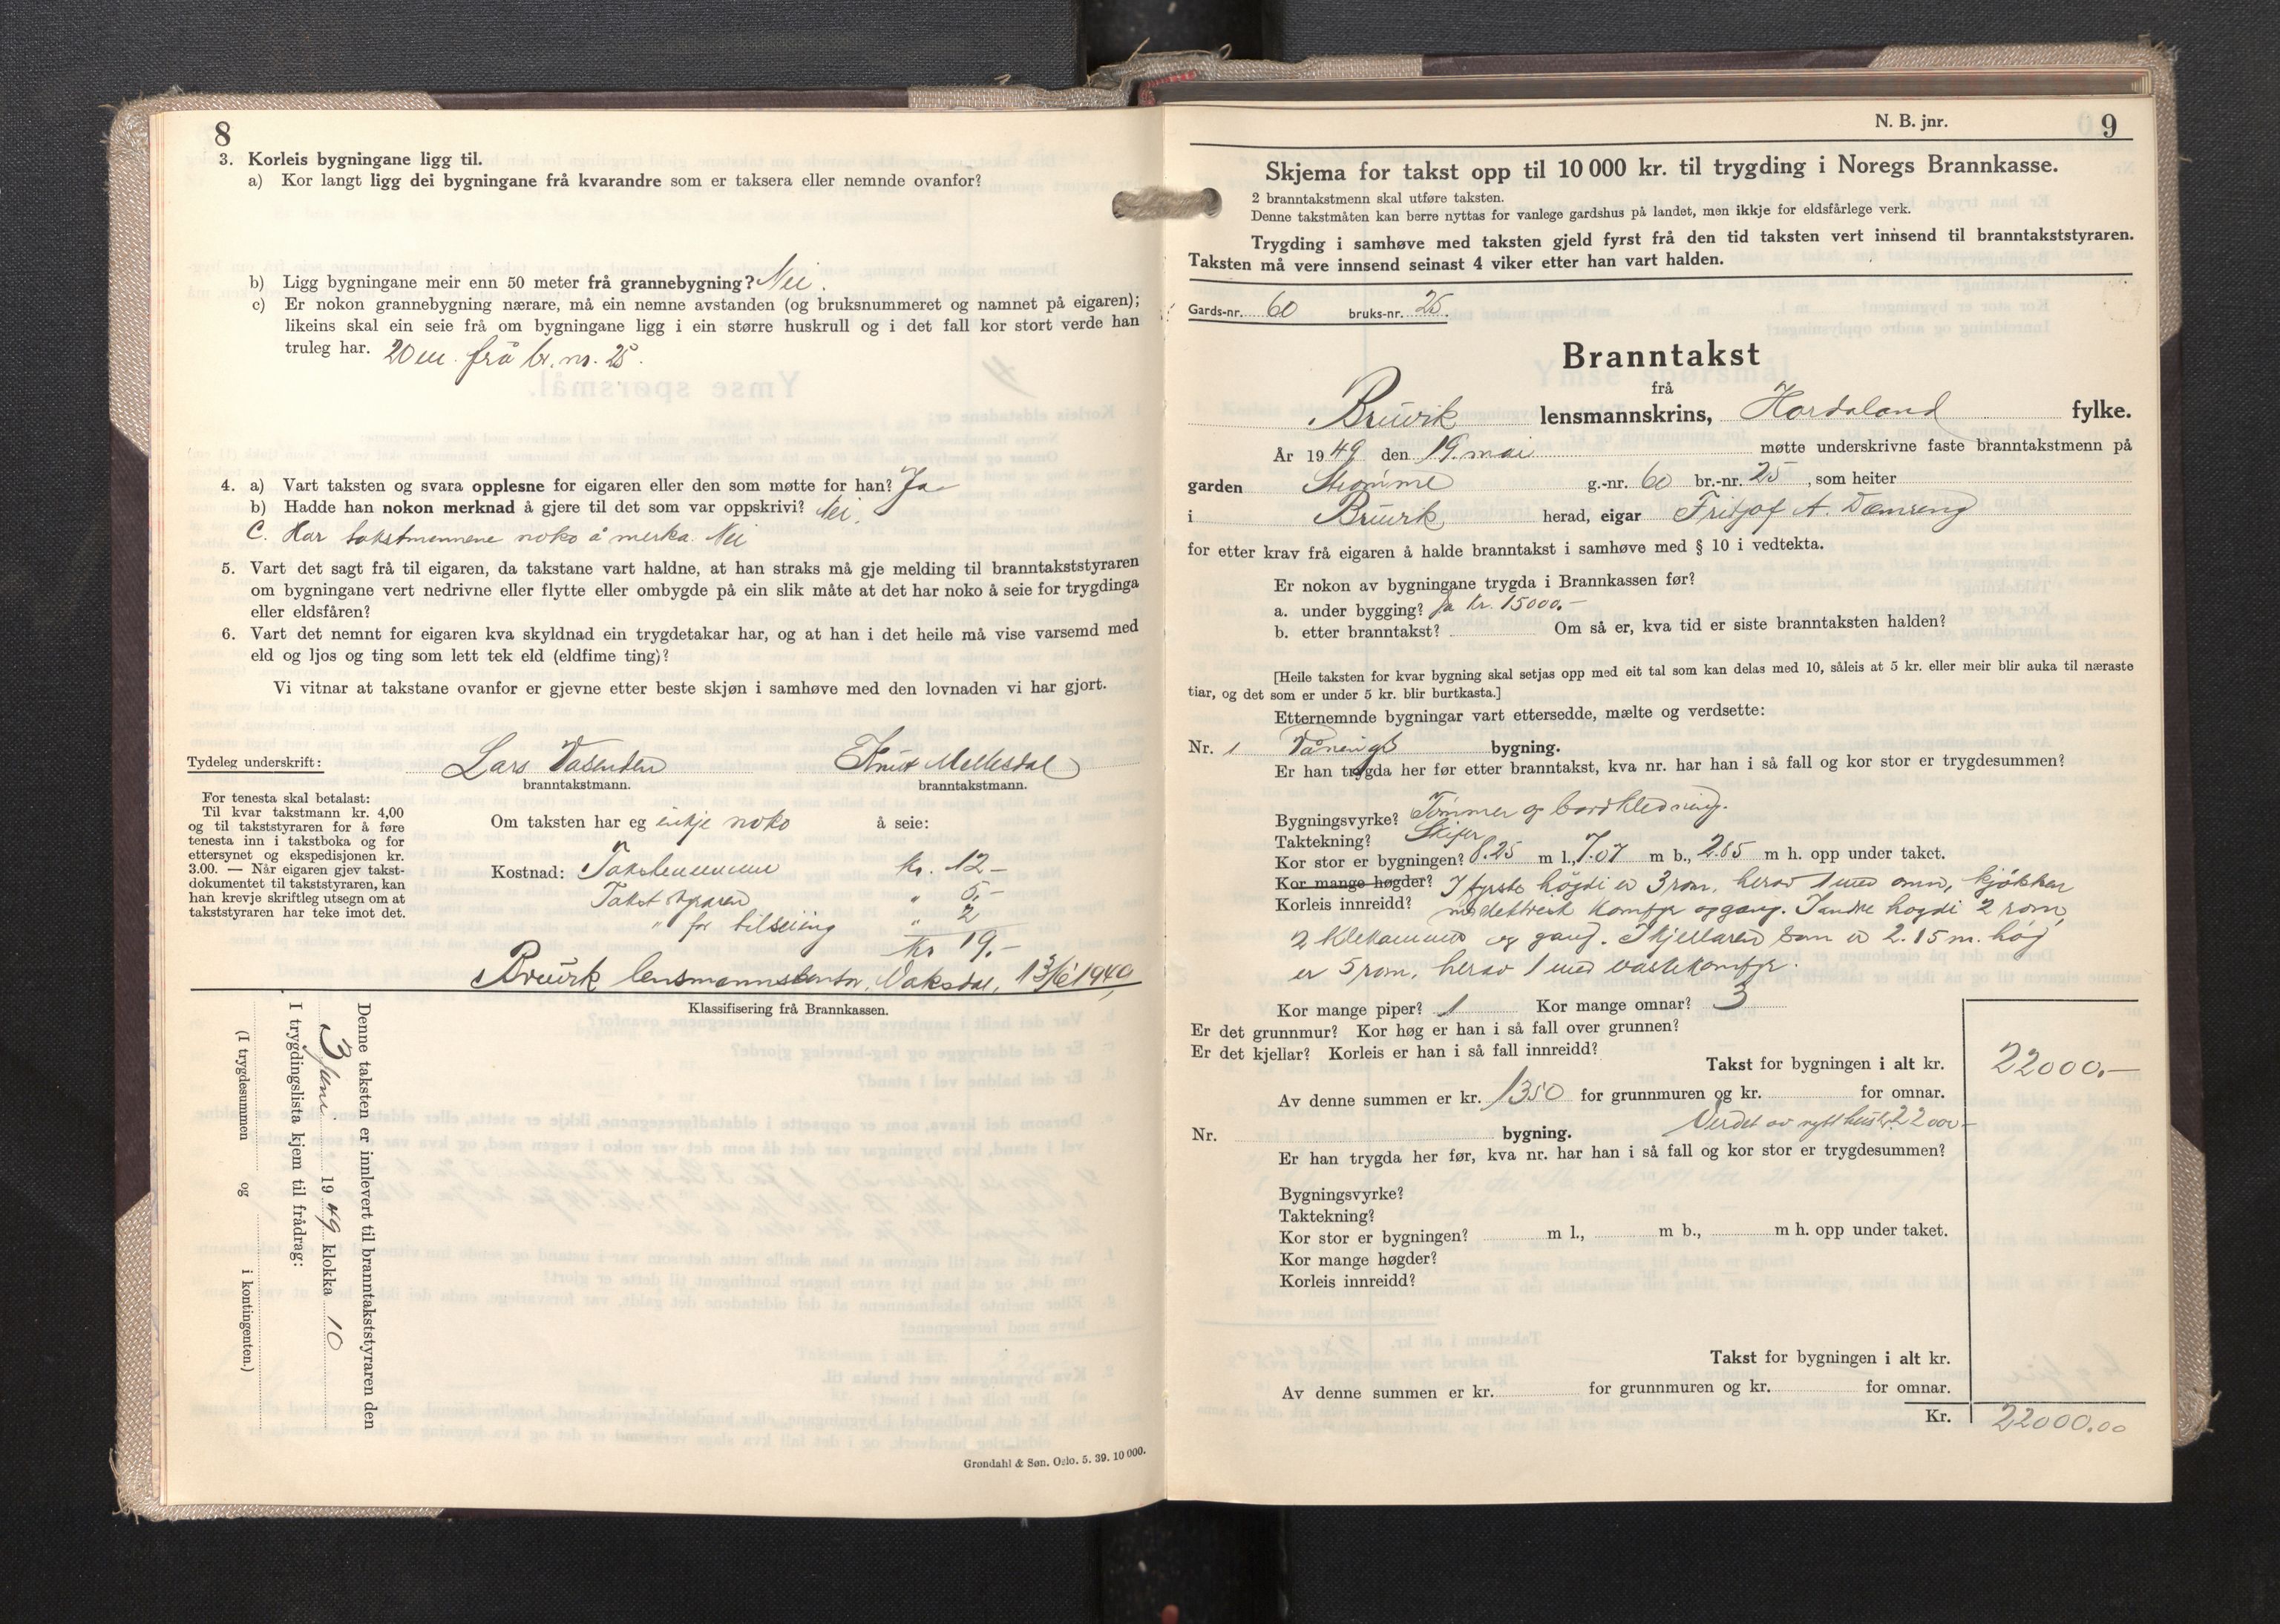 8
3. Korleis bygningane ligg til.
a) Kor langt ligg dei bygningane frå kvarandre som er taksera eller nemnde ovanfor?
b) Ligg bygningane meir enn 50 meter frå grannebygning? Nei.
c) Er nokon grannebygning nærare, må ein nemne avstanden (og bruksnummeret og namnet på eigaren);
likeins skal ein seie frå om bygningane ligg i ein større huskrull og i det fall kor stort verde han
truleg har. 20 m. frå br. nr. 25.
4. a) Vart taksten og svara opplesne for eigaren eller den som møtte for han? Ja
b) Hadde han nokon merknad å gjere til det som var oppskrivi? Nei.
C. Har takstmennene noko å merka. Nei
5. Vart det sagt frå til eigaren, da takstane vart haldne, at han straks må gje melding til branntakststyraren
om bygningane vert nedrivne eller flytte eller ombygde på ein slik måte at det har noko å seie for trygdinga
eller eldsfåren?
6. Vart det nemnt for eigaren kva skyldnad ein trygdetakar har, og at han i det heile må vise varsemd med
eld og ljos og ting som lett tek eld (eldfime ting)?
Vi vitnar at takstane ovanfor er gjevne etter beste skjøn i samhøve med den lovnaden vi har gjort.
Tydeleg underskrift: Lars Vasenden Knut Mellesdal
branntakstmann. branntakstmann.
For tenesta skal betalast:
Til kvar takstmann kr. 4,00
og til takststyraren for å føre
tenesta inn i takstboka og for
ettersynet og ekspedisjonen kr.
3.00. — Når eigaren gjev takst-
dokumentet til takststyraren, kan
han krevje skriftleg utsegn om at
takststyraren har teke imot det.
Om taksten har eg inkje noko å seie:
Kostnad: Takstmennene kr. 12.-
Takststyraren " 5.-
" for tilseiing " 2
Kr 19.-
Bruvik lensmannskontor, Vaksdal, 13/6 1949
Klassifisering frå Brannkassen.
Denne taksten er innlevert til branntakststyraren den
3 juni 1949 klokka 10
I trygdingslista kjem til frådrag:
(I trygdesummen og i kontingenten.)
Grøndahl & Søn, Oslo. 5. 39. 10 000.
N. B. jnr. 9
Skjema for takst opp til 10 000 kr. til trygding i Noregs Brannkasse.
2 branntakstmenn skal utføre taksten.
Denne takstmåten kan berre nyttas for vanlege gardshus på landet, men ikkje for eldsfårlege verk.
Trygding i samhøve med taksten gjeld fyrst frå den tid taksten vert innsend til branntakststyraren.
Taksten må vere innsend seinast 4 viker etter han vart halden.
Gards-nr. 60 bruks-nr. 25.
Branntakst
frå
Bruvik lensmannskrins, Hordaland fylke.
År 1949 den 19. mai møtte underskrivne faste branntakstmenn på
garden Strømme g.-nr. 60 br.-nr. 25, som heiter
i Bruvik herad, eigar Fritjof A. Dæmreng
for etter krav frå eigaren å halde branntakst i samhøve med § 10 i vedtekta.
Er nokon av bygningane trygda i Brannkassen før?
a. under bygging? Ja kr. 15000.-
b. etter branntakst? Om så er, kva tid er siste branntaksten halden?
[Heile taksten for kvar bygning skal setjas opp med eit tal som kan delas med 10, såleis at 5 kr. eller meir blir auka til næraste
tiar, og det som er under 5 kr. blir burtkasta.]
Etternemnde bygningar vart ettersedde, mælte og verdsette:
Nr. 1 Vånings bygning.
Er han trygda her før etter branntakst, kva nr. har han i så fall og kor stor er trygdesummen?
Bygningsvyrke? Tømmer og bordkledning.
Taktekning? Skifer
Kor stor er bygningen? 8.25 m l., 7.07 m b., 2.85 m h. opp under taket.
Kor mange høgder? I fyrste høgdi er 3 rom, herav 1 med omn, kjøkken
Korleis innreidd? m/elektrisk komfyr og gang. I andre høgdi 2 rom,
2 klekammers og gang. I kjellaren som er 2.15 m. høg
er 5 rom, herav 1 med vaskekomfyr.
Kor mange piper? 1 Kor mange omnar? 3
Er det grunnmur? Kor høg er han i så fall over grunnen?
Er det kjellar? Korleis er han i så fall innreidd?
Takst for bygningen i alt kr. 22000.-
Av denne summen er kr. 1350 for grunnmuren og kr. for omnar.
Verdet av nytt hus kr. 22000-
Nr. bygning.
Er han trygda her før, kva nr. har han i så fall og kor stor er trygdesummen?
Bygningsvyrke?
Taktekning?
Kor stor er bygningen? m l., m b., m h. opp under taket.
Kor mange høgder?
Korleis innreidd?
Takst for bygningen i alt kr.
Av denne summen er kr. for grunnmuren og kr. for omnar.
Kr. 22000.00